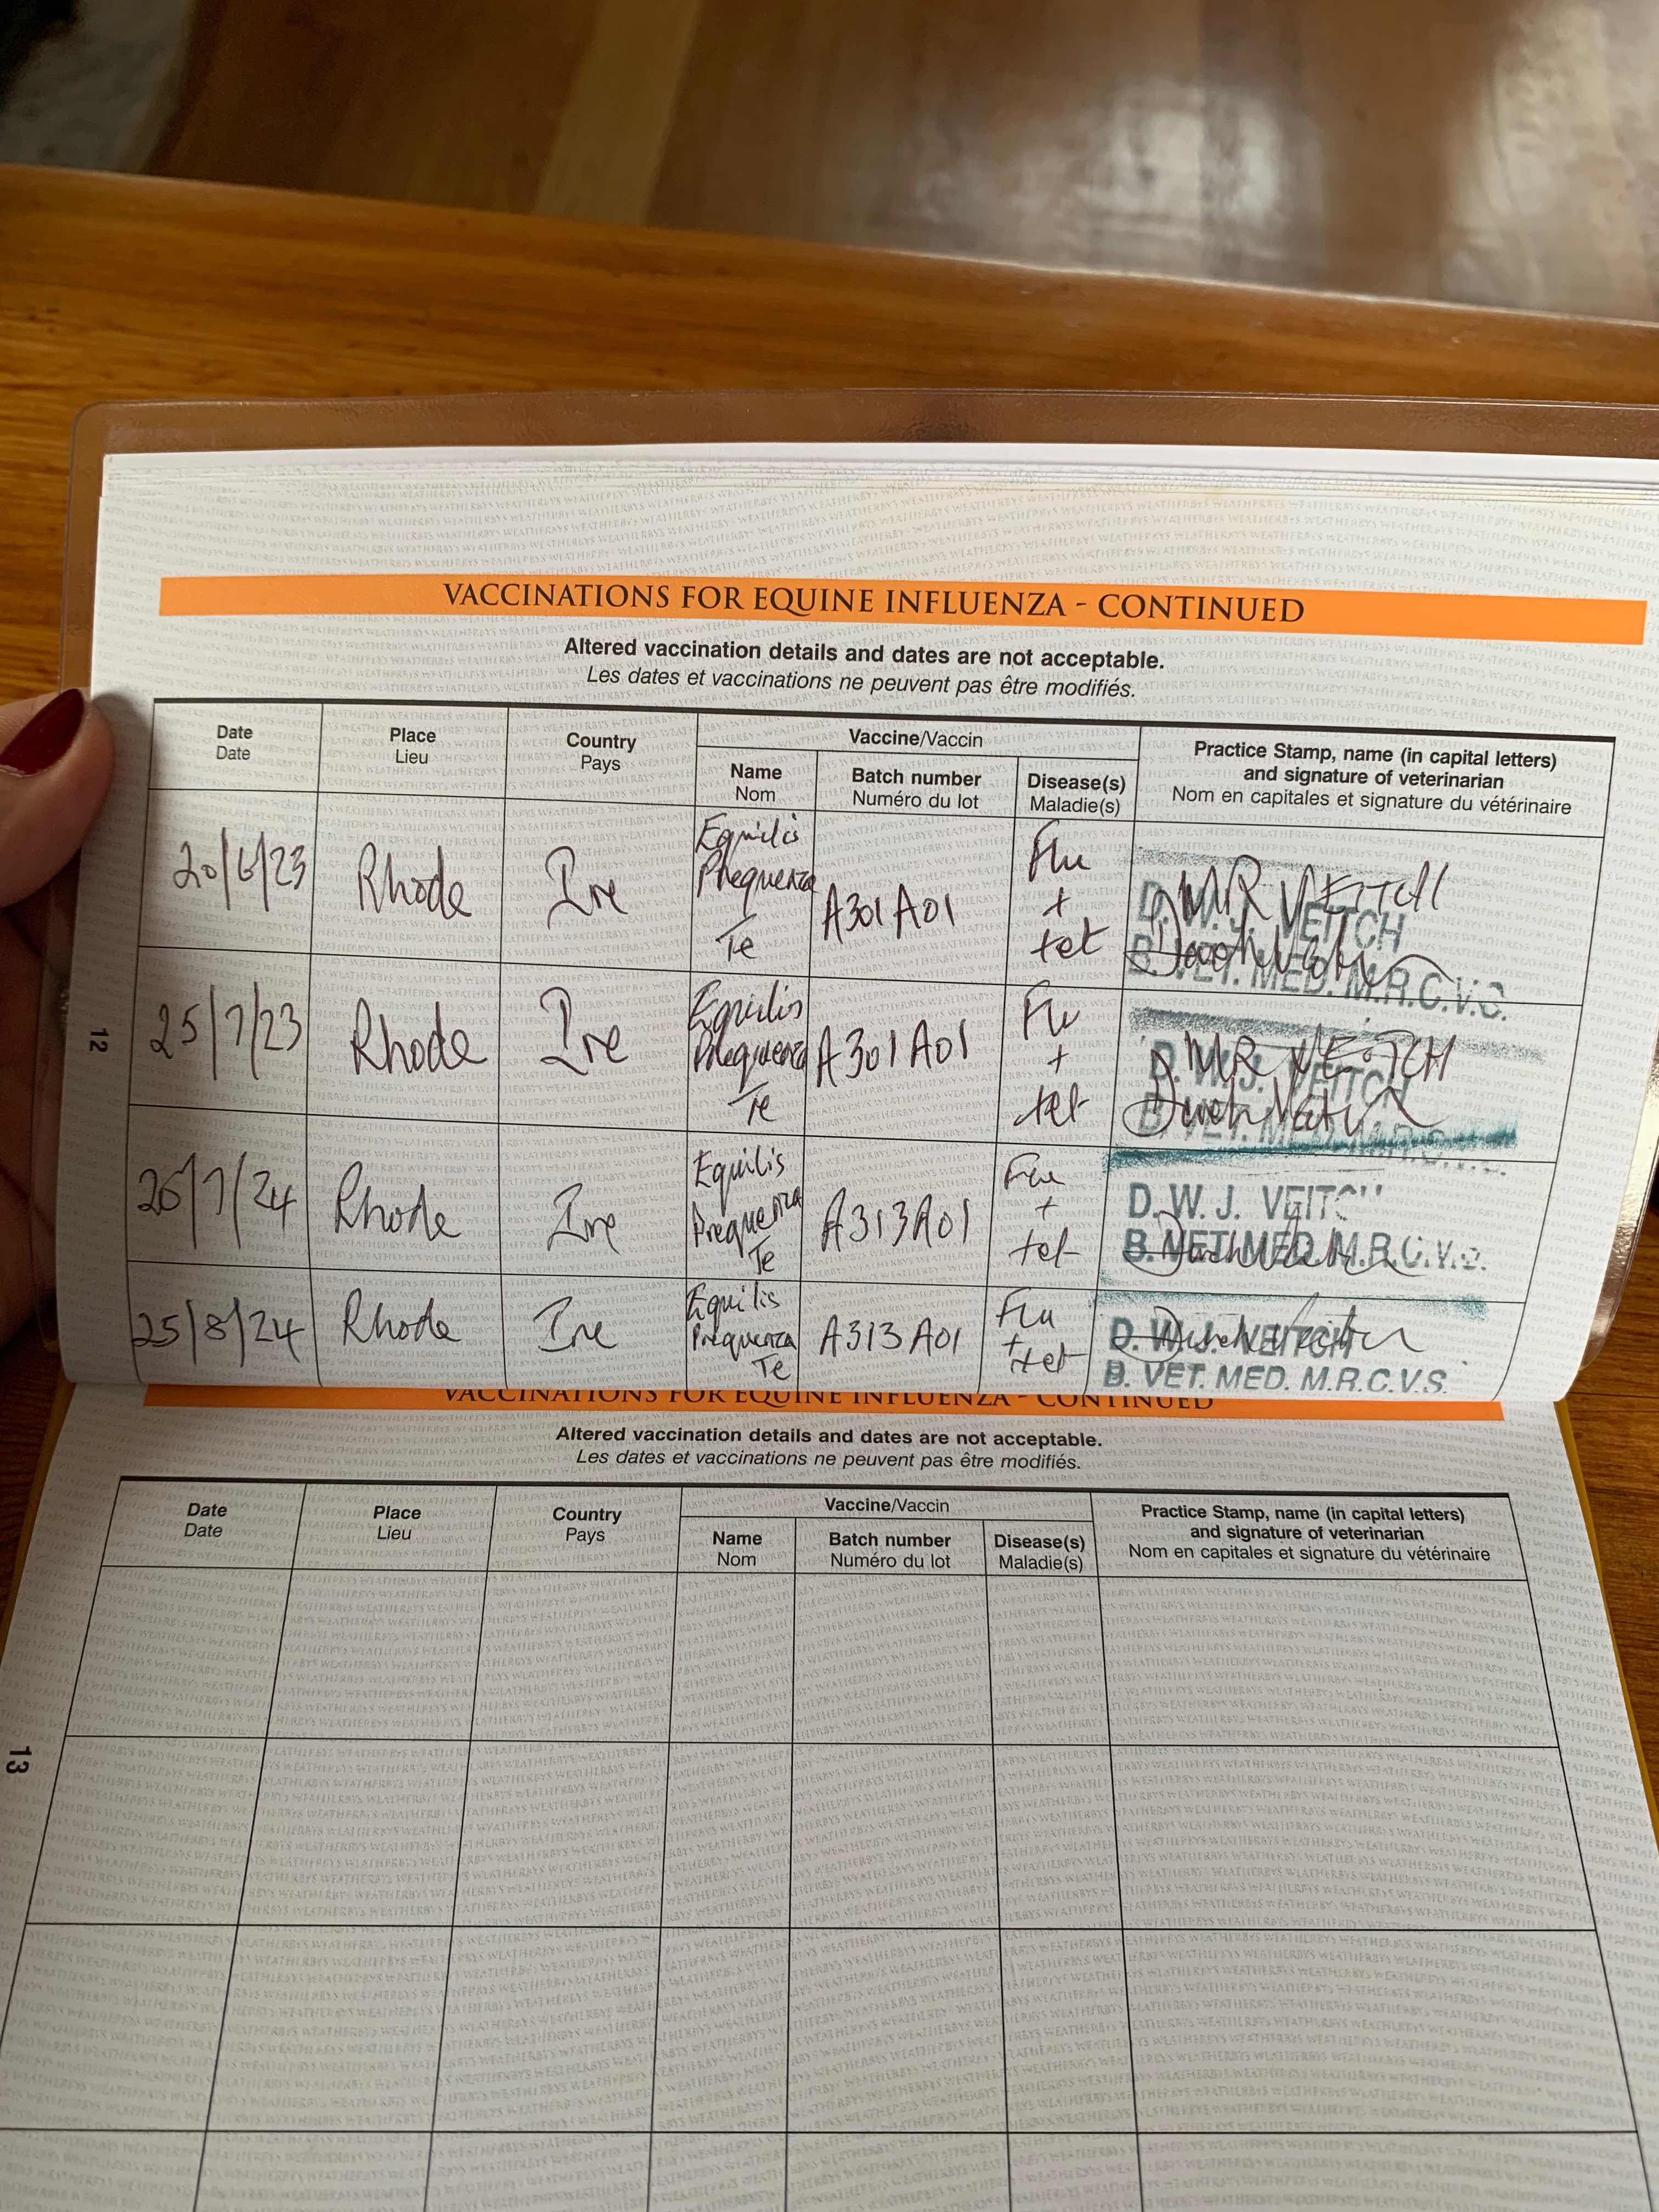 VACCINATIONS FOR EQUINE INFLUENZA - CONTINUED
Altered vaccination details and dates are not acceptable.
Les dates et vaccinations ne peuvent pas être modifiés.
Date
Date
Place
Lieu
Country
Pays
Vaccine/Vaccin
Name
Nom
Batch number
Numéro du lot
Disease(s)
Maladie(s)
Practice Stamp, name (in capital letters)
and signature of veterinarian
Nom en capitales et signature du vétérinaire
20/6/23
Rhode
Ire
Equilis
Prequenza
Te
A301A01
Flu
+
tet
MR VEITCH
D. W. J. VEITCH
B. VET. MED. M.R.C.V.S.
25/7/23
Rhode
Ire
Equilis
Prequenza
Te
A301A01
Flu
+
tet
MR VEITCH
D. W. J. VEITCH
B. VET. MED. M.R.C.V.S.
26/7/24
Rhode
Ire
Equilis
Prequenza
Te
A313A01
Flu
+
tet
D. W. J. VEITCH
B. VET. MED. M.R.C.V.S.
25/8/24
Rhode
Ire
Equilis
Prequenza
Te
A313A01
Flu
+
tet
D. W. J. VEITCH
B. VET. MED. M.R.C.V.S.
12
VACCINATIONS FOR EQUINE INFLUENZA - CONTINUED
Altered vaccination details and dates are not acceptable.
Les dates et vaccinations ne peuvent pas être modifiés.
Date
Date
Place
Lieu
Country
Pays
Vaccine/Vaccin
Name
Nom
Batch number
Numéro du lot
Disease(s)
Maladie(s)
Practice Stamp, name (in capital letters)
and signature of veterinarian
Nom en capitales et signature du vétérinaire
13